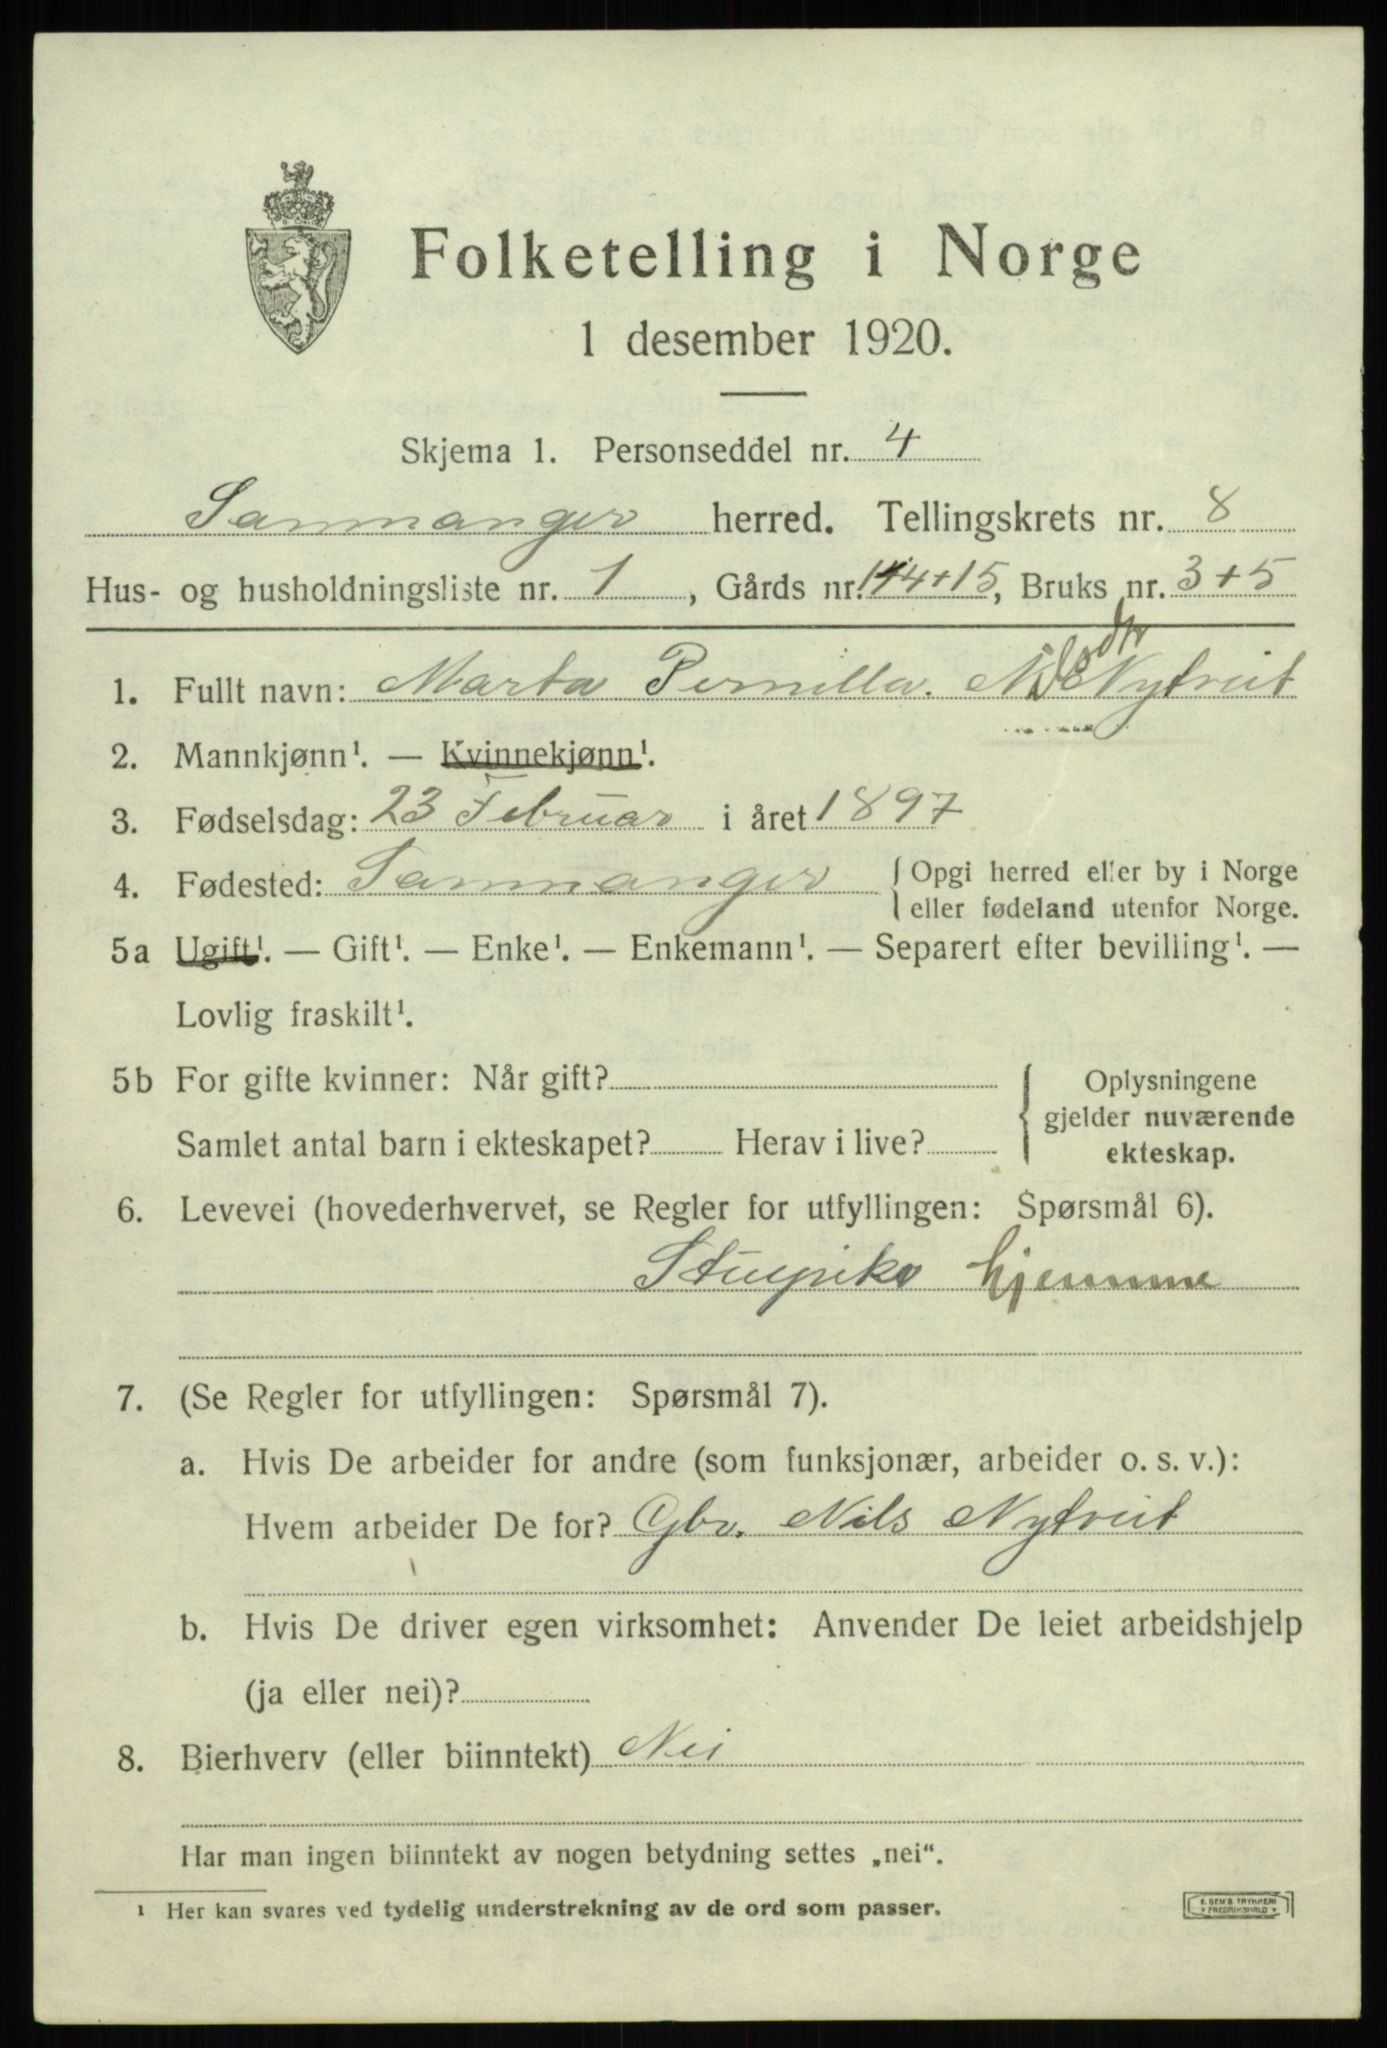 Folketelling i Norge
1 desember 1920.
Skjema 1. Personseddel nr. 4
Sammanger herred. Tellingskrets nr. 8
Hus- og husholdningsliste nr. 1, Gårds nr. 14+15, Bruks nr. 3+5
1. Fullt navn: Marta Pernilla. Nilsdtr Nytveit
2. Mannkjønn¹. — Kvinnekjønn¹.
3. Fødselsdag: 23 Februar i året 1897
4. Fødested: Sammanger {Opgi herred eller by i Norge
eller fødeland utenfor Norge.
5a Ugift¹. — Gift¹. — Enke¹. — Enkemann¹. — Separert efter bevilling¹. —
Lovlig fraskilt¹.
5b For gifte kvinner: Når gift?
Samlet antal barn i ekteskapet? Herav i live?
{Oplysningene
gjelder nuværende
ekteskap.
6. Levevei (hovederhvervet, se Regler for utfyllingen: Spørsmål 6).
hjemme
7. (Se Regler for utfyllingen: Spørsmål 7).
a. Hvis De arbeider for andre (som funksjonær, arbeider o. s. v.):
Hvem arbeider De for? Gbr. Nils Nytveit
b. Hvis De driver egen virksomhet: Anvender De leiet arbeidshjelp
(ja eller nei)?
8. Bierhverv (eller biinntekt) Nei
Har man ingen biinntekt av nogen betydning settes „nei“.
¹ Her kan svares ved tydelig understrekning av de ord som passer.
E. SEM'S TRYKKERI
* FREDRIKSHALD *